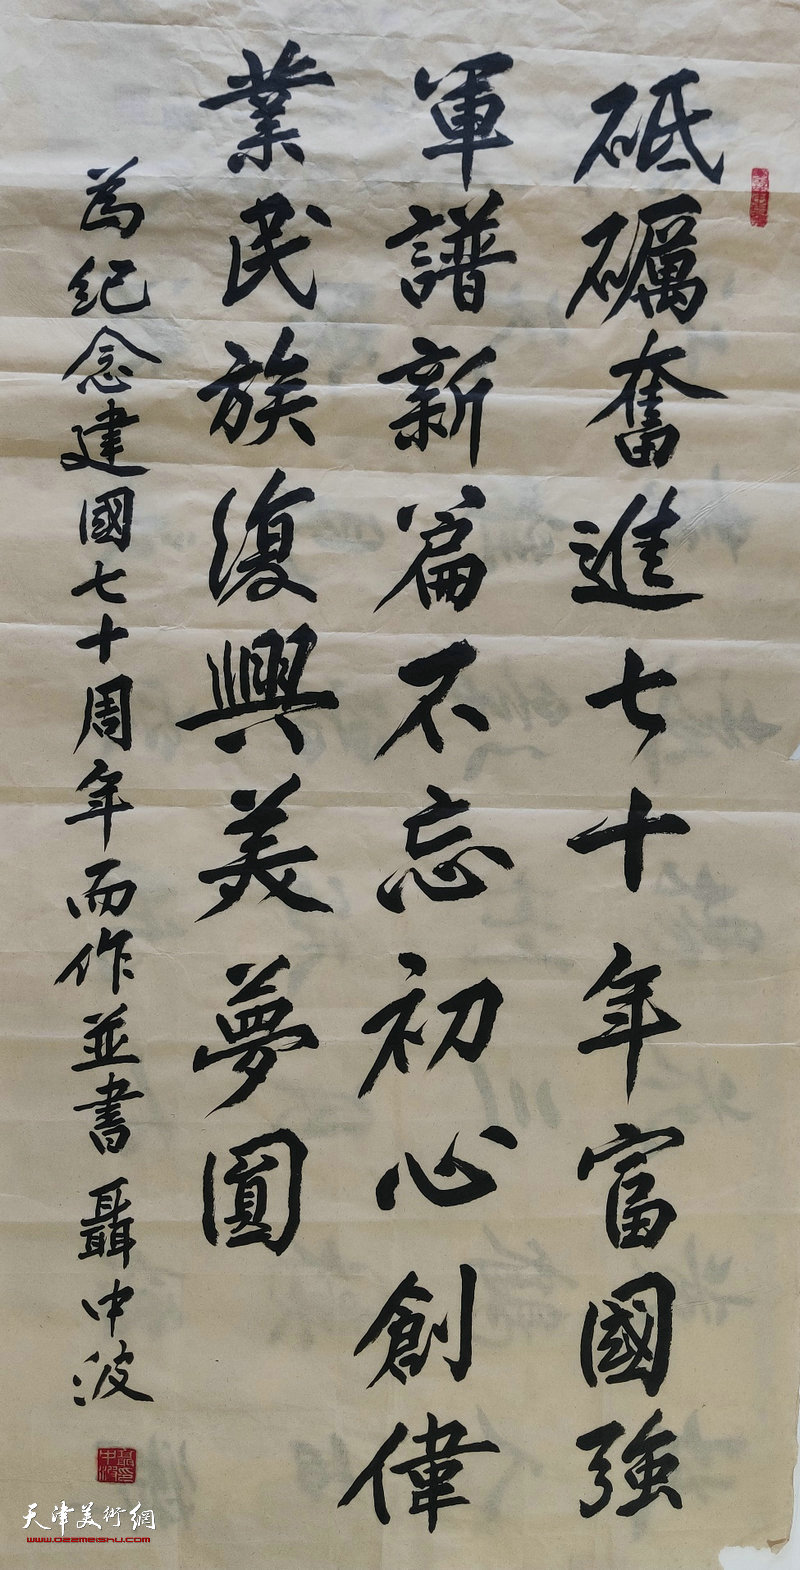 砥礪奮進七十年富國強
軍譜新篇不忘初心創偉
業民族復興美夢圓
為紀念建國七十周年而作並書 聶中波
天津美術網
www.022meishu.com